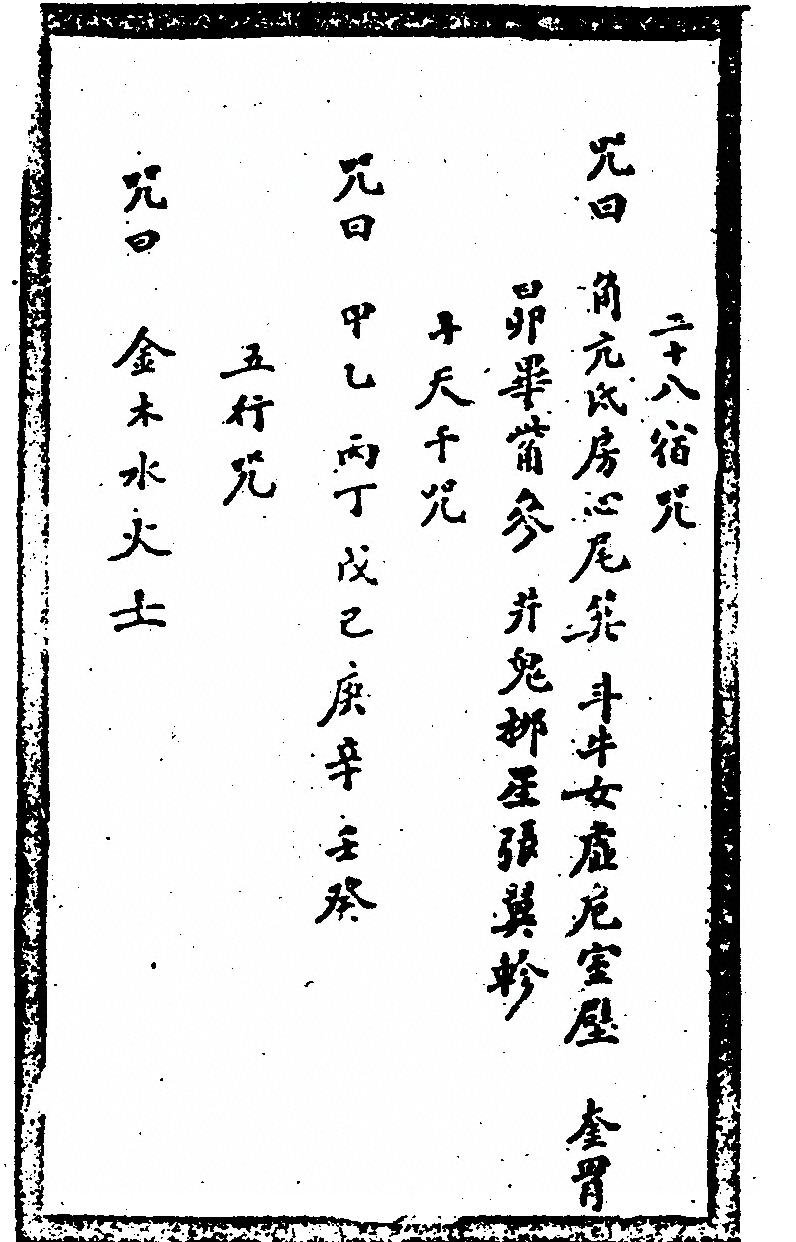 二十八宿咒
咒曰 角亢氐房心尾箕 斗牛女虛危室壁 奎胃
昴畢觜參 井鬼柳星張翼軫
天干咒
咒曰 甲乙 丙丁戊己庚辛壬癸
五行咒
咒曰 金木水火土